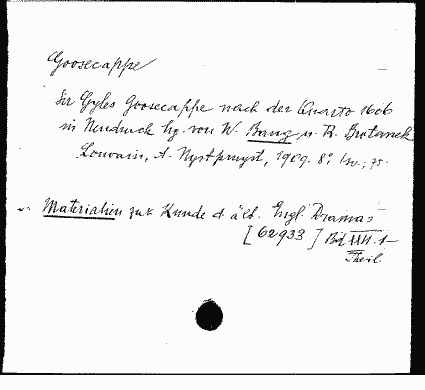 Goosecappe
Sir Gyles Goosecappe nach der Quarto 1606
in Neudruck hg. von W. Bang u. R. Brotanek
Louvain, A. Uystpruyst, 1909. 8°,
Materialien zur Kunde d. ält. Engl. Dramas
[62933] Bd
Theil.